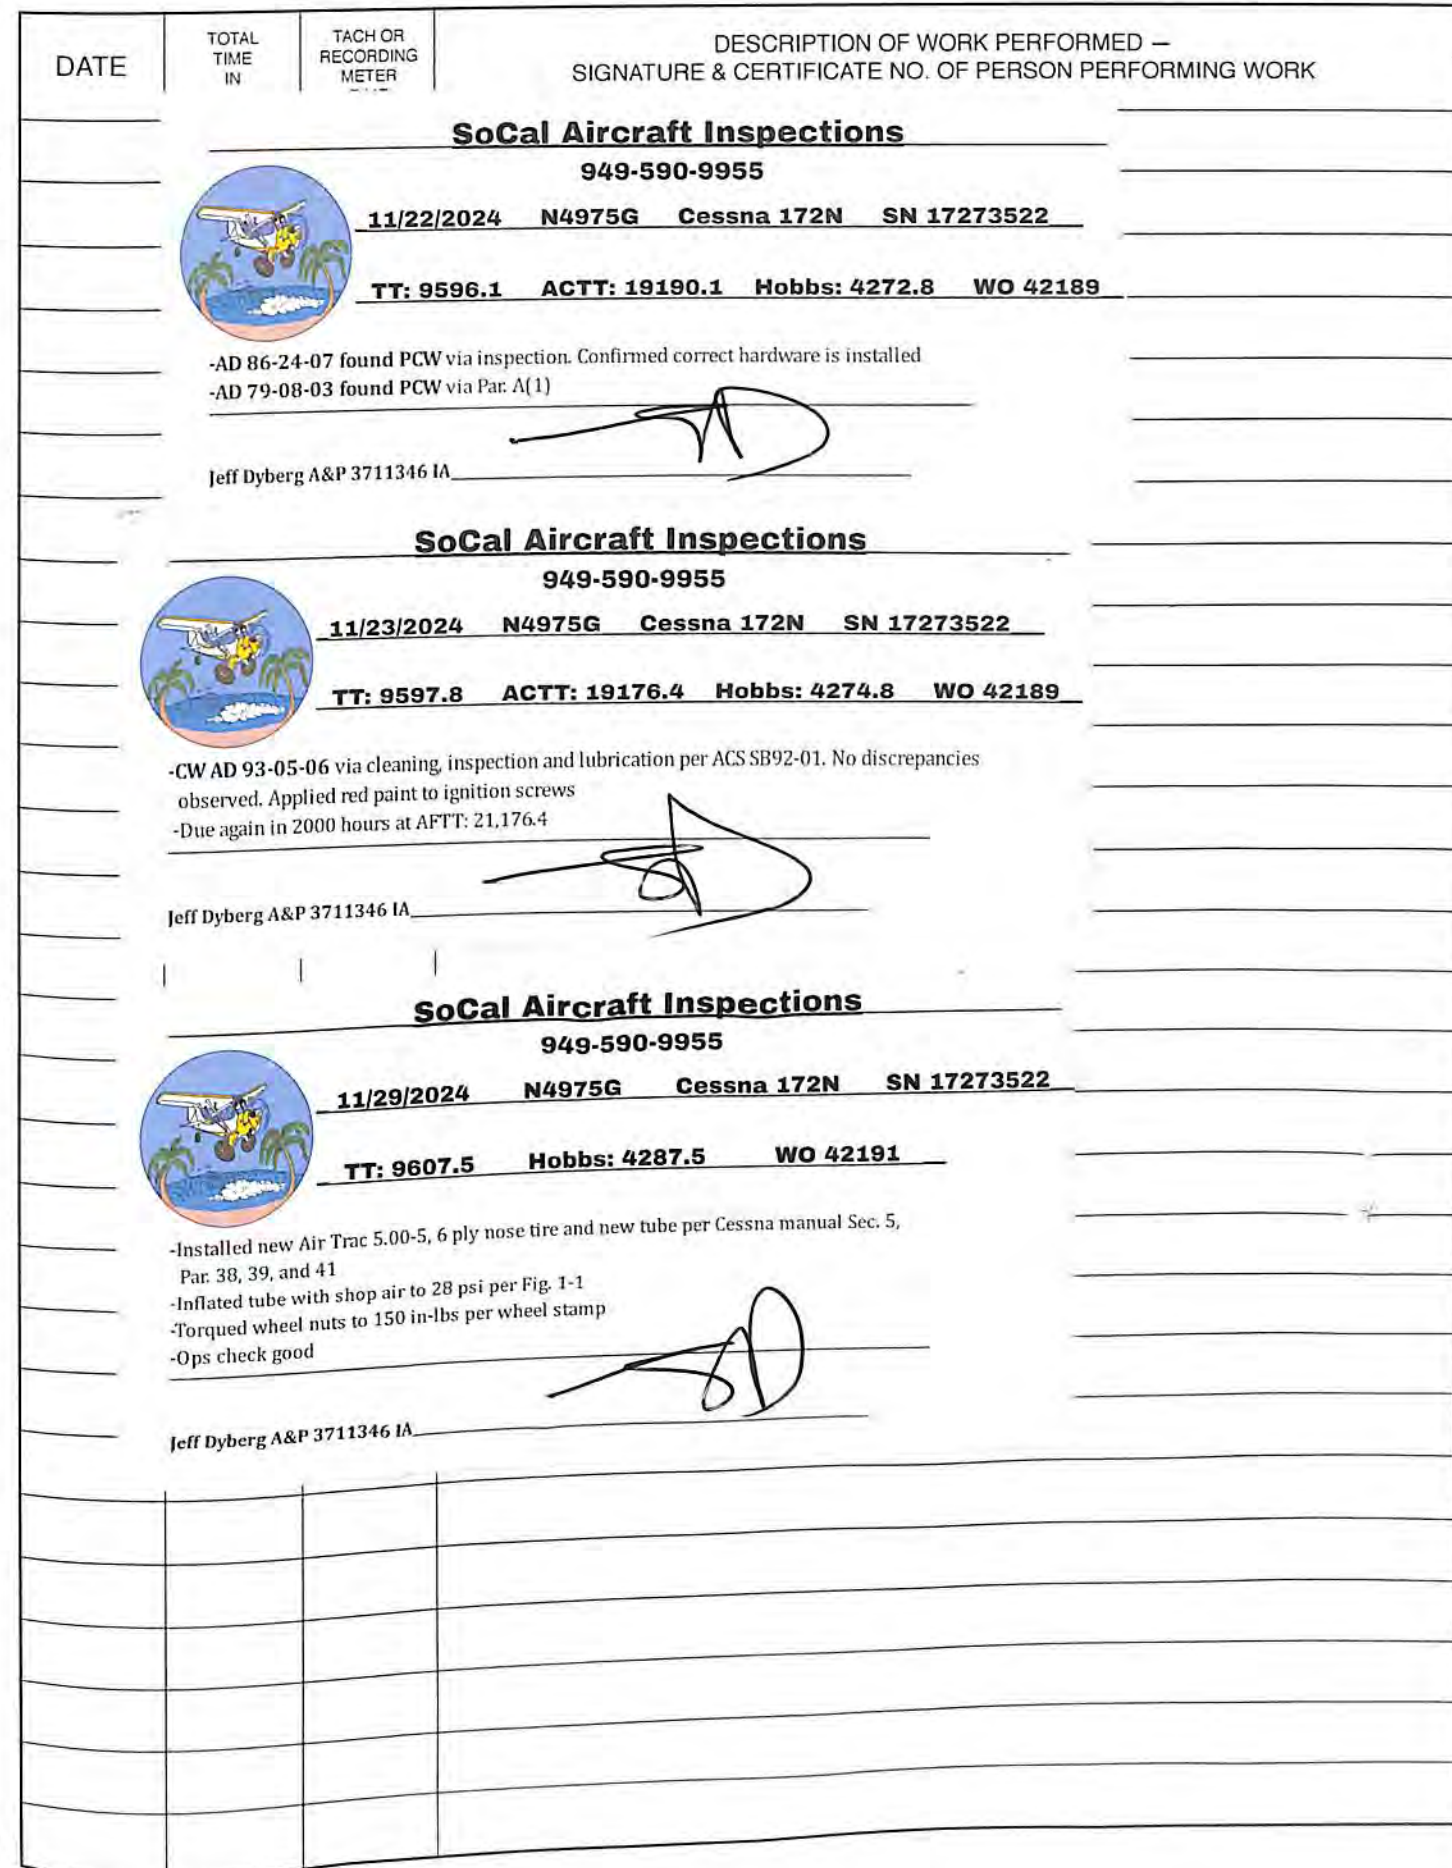 DATE
TOTAL
TIME
IN
TACH OR
RECORDING
METER
DESCRIPTION OF WORK PERFORMED —
SIGNATURE & CERTIFICATE NO. OF PERSON PERFORMING WORK
SoCal Aircraft Inspections
949-590-9955
11/22/2024 N4975G Cessna 172N SN 17273522
TT: 9596.1 ACTT: 19190.1 Hobbs: 4272.8 WO 42189
-AD 86-24-07 found PCW via inspection. Confirmed correct hardware is installed
-AD 79-08-03 found PCW via Par. A(1)
Jeff Dyberg A&P 3711346 IA
SoCal Aircraft Inspections
949-590-9955
11/23/2024 N4975G Cessna 172N SN 17273522
TT: 9597.8 ACTT: 19176.4 Hobbs: 4274.8 WO 42189
-CW AD 93-05-06 via cleaning, inspection and lubrication per ACS SB92-01. No discrepancies
observed. Applied red paint to ignition screws
-Due again in 2000 hours at AFTT: 21,176.4
Jeff Dyberg A&P 3711346 IA
SoCal Aircraft Inspections
949-590-9955
11/29/2024 N4975G Cessna 172N SN 17273522
TT: 9607.5 Hobbs: 4287.5 WO 42191
-Installed new Air Trac 5.00-5, 6 ply nose tire and new tube per Cessna manual Sec. 5,
Par. 38, 39, and 41
-Inflated tube with shop air to 28 psi per Fig. 1-1
-Torqued wheel nuts to 150 in-lbs per wheel stamp
-Ops check good
Jeff Dyberg A&P 3711346 IA